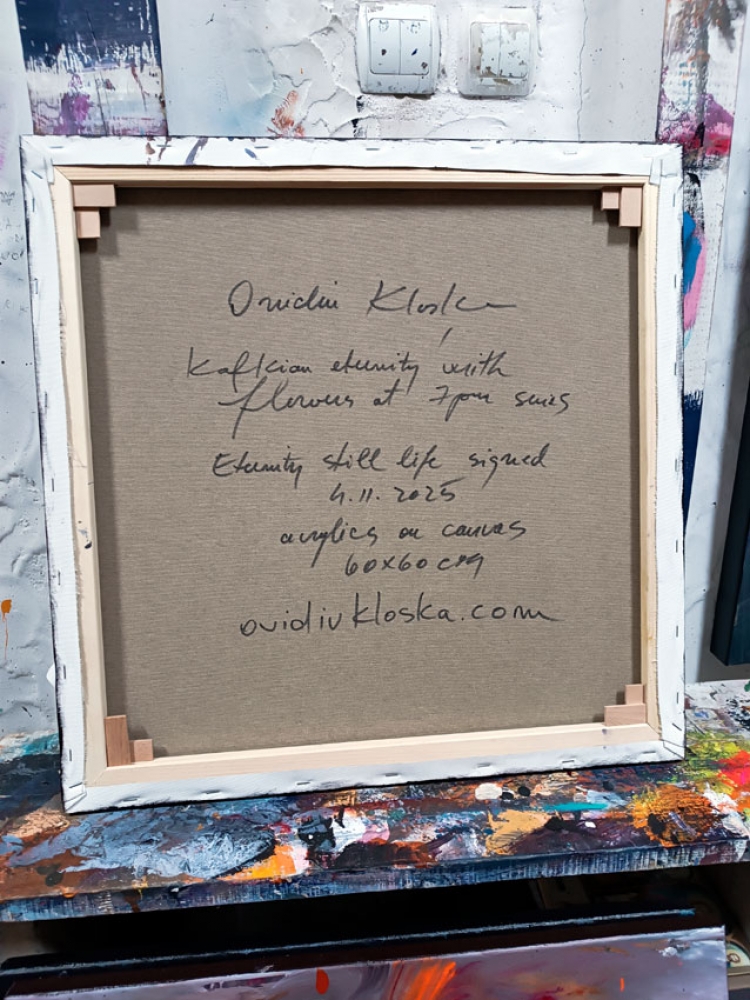 Ovidiu Kloska
Kafkian eternity with
flowers at 7pm
Eternity still life signed
4.11.2025
acrylics on canvas
60x60 cm
ovidiukloska.com